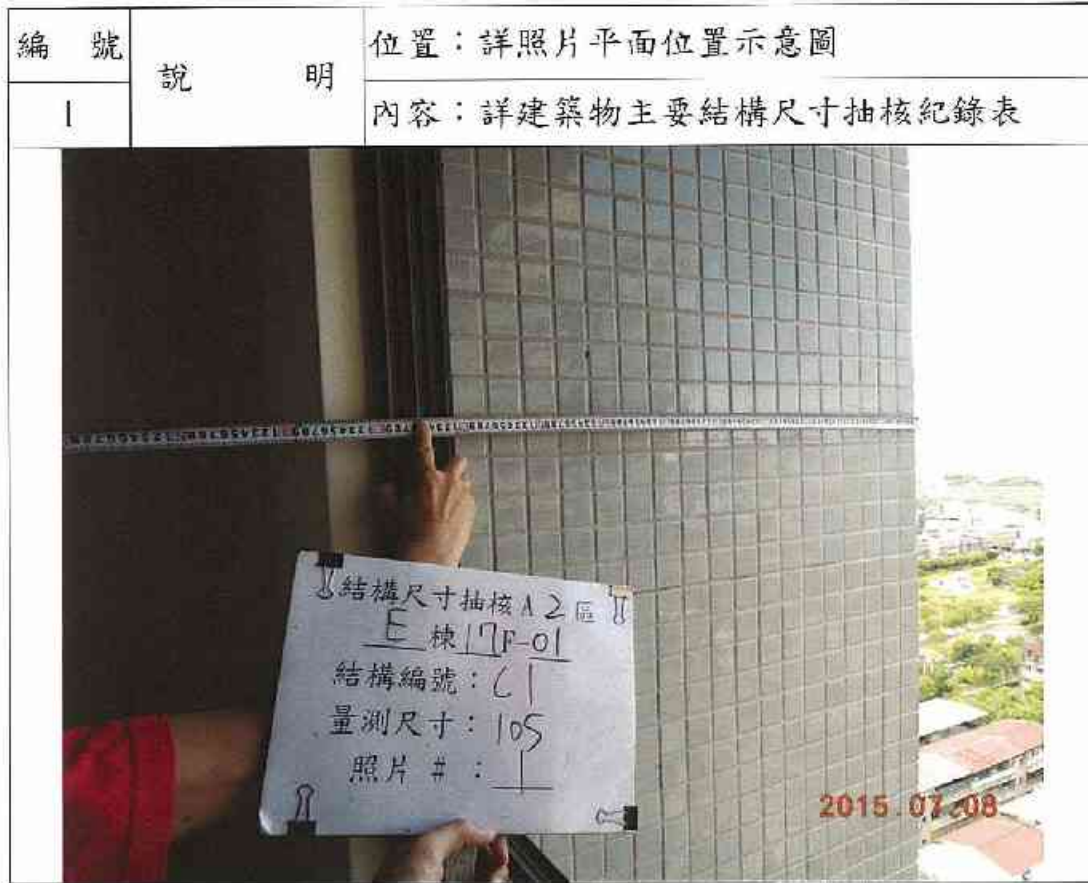 編 號
說 明
位置：詳照片平面位置示意圖
1
內容：詳建築物主要結構尺寸抽核紀錄表
結構尺寸抽核A2區
E棟17F-01
結構編號：C1
量測尺寸：105
照片 #：1
2015.07.08